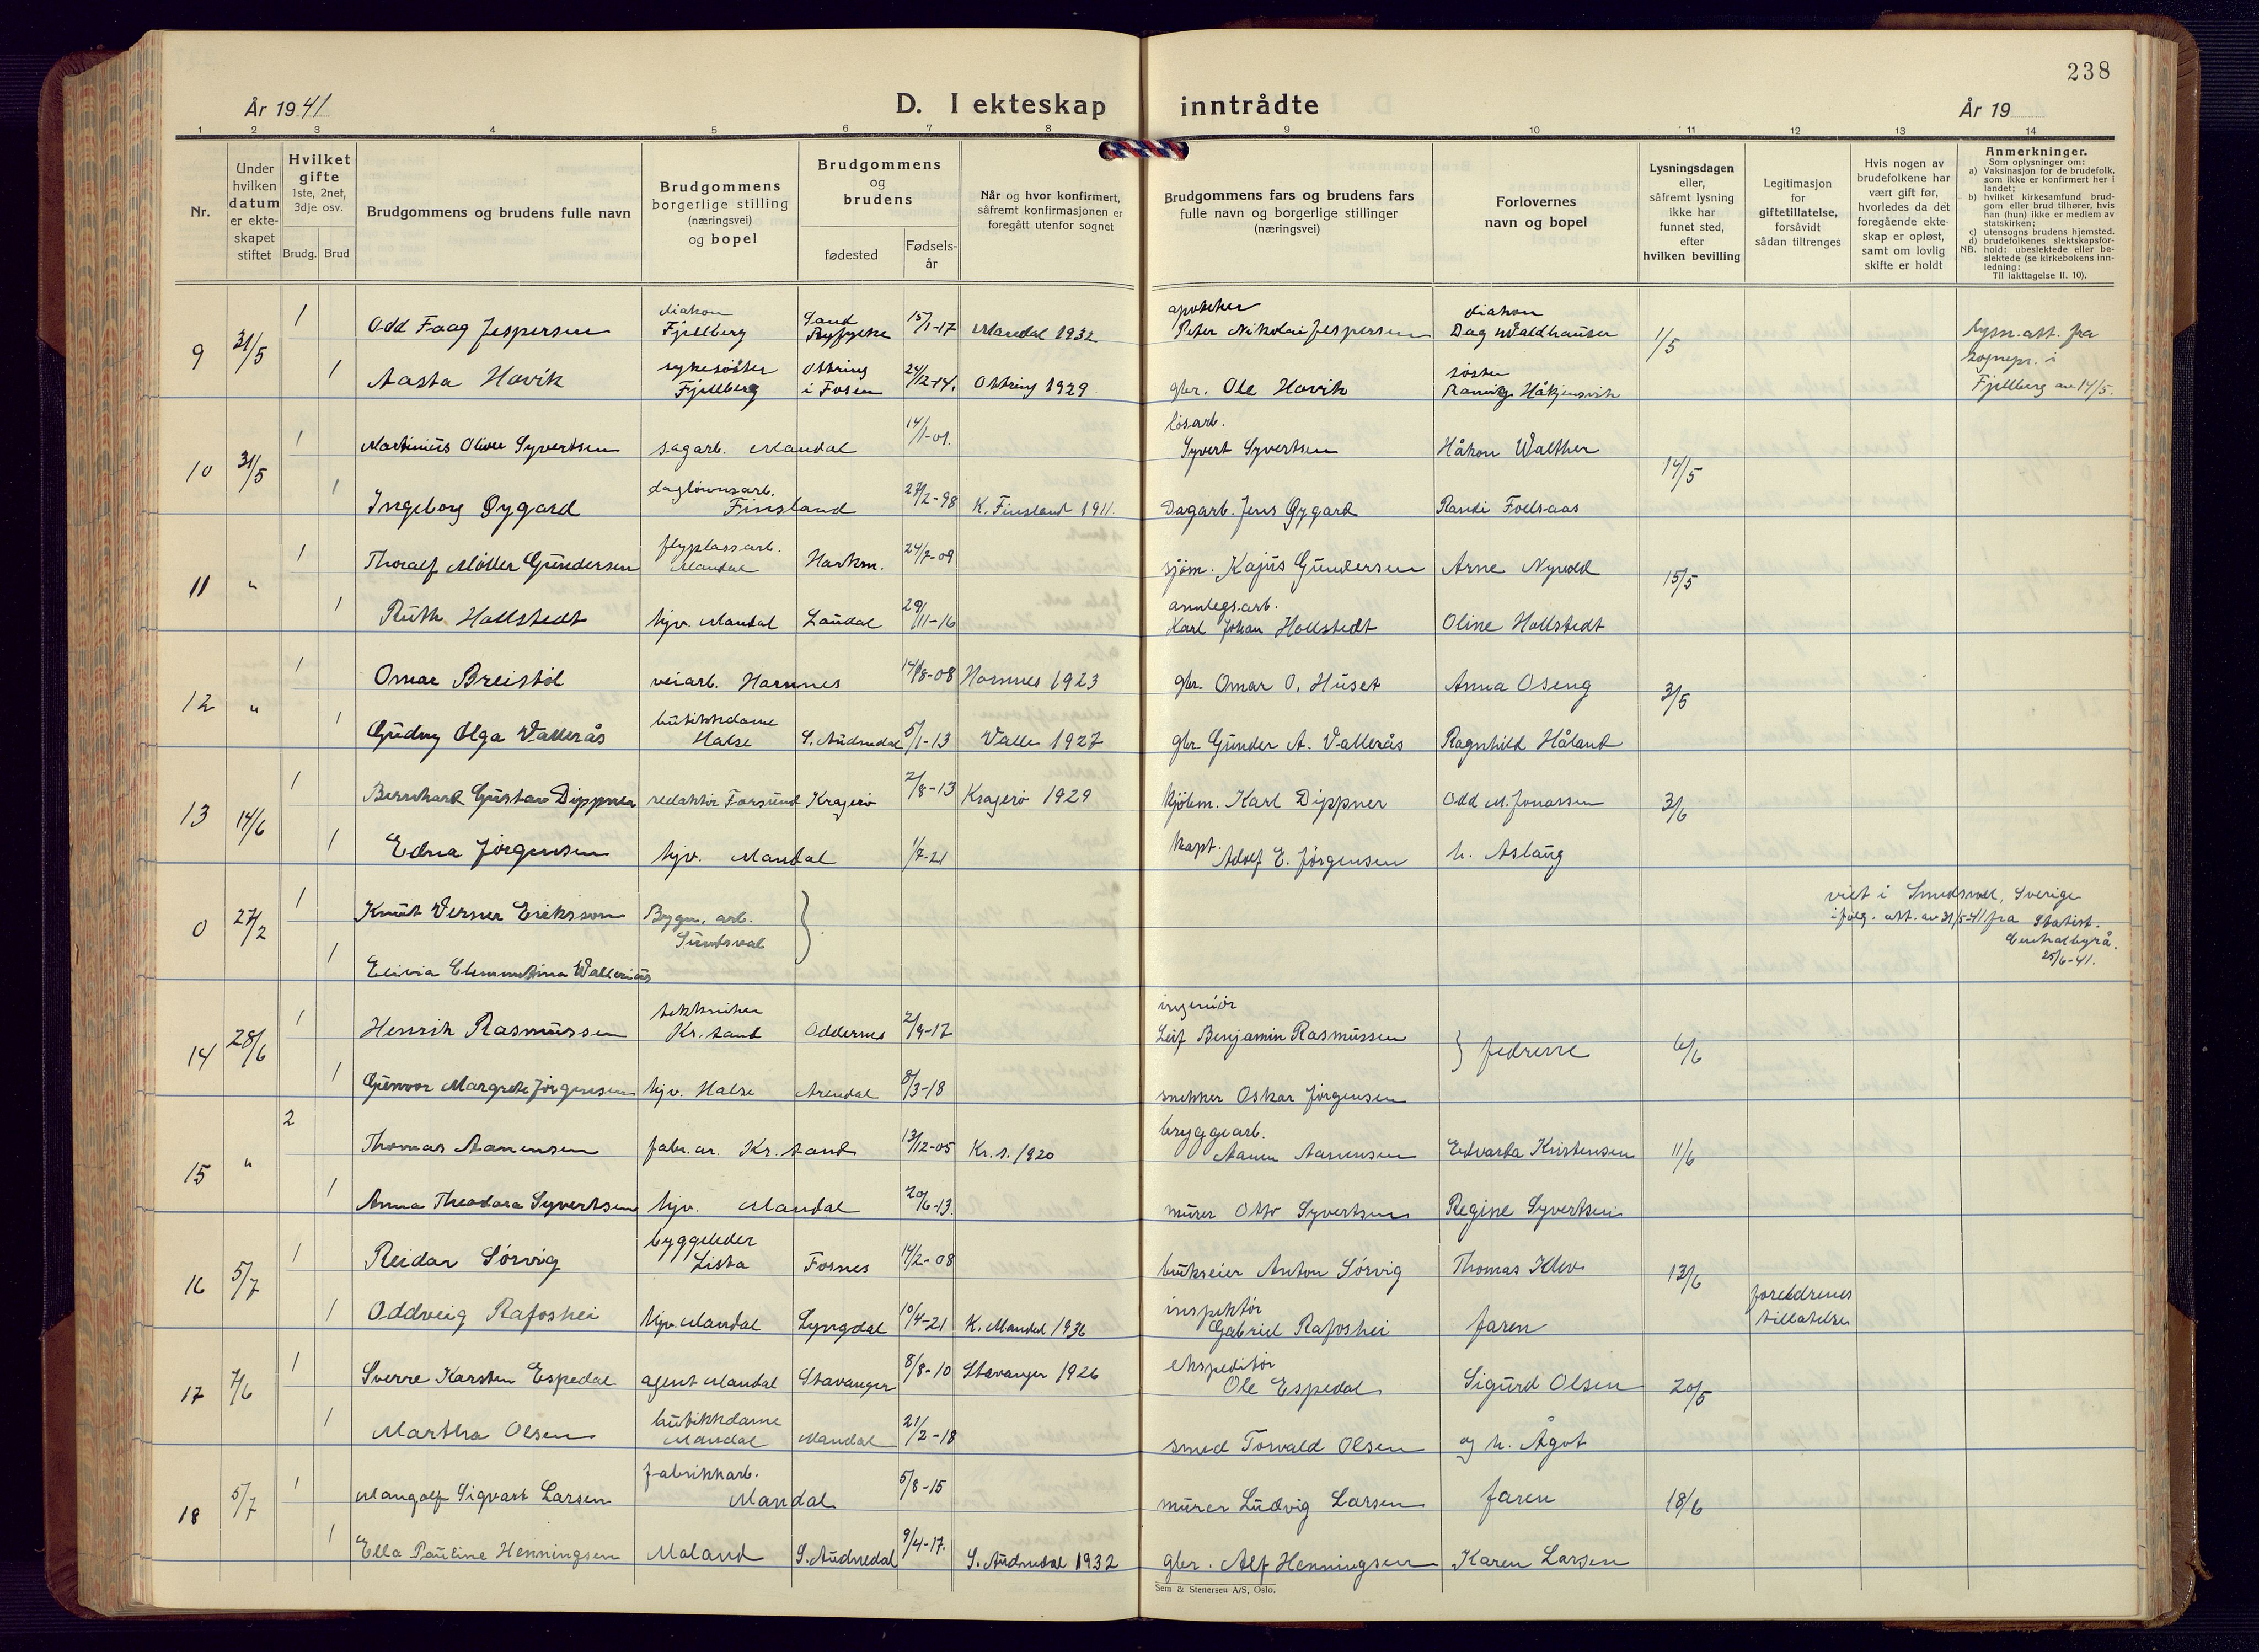 238
År 1941
D. I ekteskap inntrådte
År 19
1 2 3 4 5 6 7 8 9 10 11 12 13 14
Nr.
Under hvilken datum er ekte-skapet stiftet
Hvilket gifte
1ste, 2net, 3dje osv.
Brudg. Brud
Brudgommens og brudens fulle navn
Brudgommens borgerlige stilling (næringsvei) og bopel
Brudgommens og brudens
fødested
Fødsels-år
Når og hvor konfirmert, såfremt konfirmasjonen er foregått utenfor sognet
Brudgommens fars og brudens fars fulle navn og borgerlige stillinger (næringsvei)
Forlovernes navn og bopel
Lysningsdagen eller, såfremt lysning ikke har funnet sted, efter hvilken bevilling
Legitimasjon for giftetillatelse, forsåvidt sådan tiltrenges
Hvis nogen av brudefolkene har vært gift før, hvorledes da det foregående ekte-skap er opløst, samt om lovlig skifte er holdt
Anmerkninger.
Som oplysninger om:
a) Vaksinasjon for de brudefolk, som ikke er konfirmert her i landet;
b) hvilket kirkesamfund brud-gom eller brud tilhører, hvis han (hun) ikke er medlem av statskirken;
c) utensogns brudens hjemsted.
d) brudefolkenes slektskapsfor-hold: ubeslektede eller be-slektede (se kirkebokens inn-ledning:
NB. Til iakttagelse II. 10).
9 31/5 1 Odd Faag Jespersen diakon Fjellberg Sand Ryfylke 15/1-17 Mandal 1932 apoteker Peter Nikolai Jespersen diakon Dag Waldhauser 1/5 lysn. att. fra sognepr. i Fjellberg av 14/5.
1 Aasta Hovik sykesøster Fjellberg i Fosen 24/12-14. 1929 gbr. Ole Hovik søster
10 31/5 1 Martinius Oliver Syvertsen sagarb. Mandal 14/1-01. løsarb. Syvert Syvertsen Håkon Walther 14/5
1 Ingeborg Øygard daglønnsarb. Finsland 27/2-98 K. Finsland 1911. Dagarb. Jens Øygard Randi Foelsaas
11 " 1 Thoralf Møller Gundersen flyplassarb. Mandal Harkm. 24/7-09 sjøm. Kajus Gundersen Arne Nyvold 15/5
1 Ruth Hollstedt hjv. Mandal Laudal 29/11-16 annlegsarb. Karl Johan Hollstedt Oline Hollstedt
12 " 1 Omar Breistøl veiarb. Hornnes 14/8-08 Hornnes 1923 gbr. Omar O. Huset Anna Oseng 3/5
1 Gudny Olga Vallerås butikkdame Halse S. Audnedal 5/1-13 Valle 1927 gbr. Gunder A. Vallerås Ragnhild Håland
13 14/6 1 Bernhard Gustav Dippner redaktør Farsund Kragerø 2/8-13 Kragerø 1929 kjøbm. Karl Dippner Odd M. Jonassen 3/6
1 Edna Jørgensen hjv. Mandal 1/7-21 kapt. Adolf E. Jørgensen h. Aslaug
0 27/2 1 Knut Verner Eriksson Bygn. arb. Sundsval
viet i Sundsvall, Sverige
ifølg. att. av 31/5-41 fra Statist.
Centralbyrå.
25/6-41.
1 Elivia Clementina Wallerius
14 28/6 1 Henrik Rasmussen tekniker Kr.sand Oddernes 2/9-17 ingeniør Leif Benjamin Rasmussen fedrene 6/6
1 Gunvor Margrete Jørgensen hjv. Halse Arendal 8/3-18 snekker Oskar Jørgensen
15 " 2 Thomas Aanensen fabr.ar. Kr.sand 13/12-05 Kr.s. 1920 bryggearb. Aanen Aanensen Edvarda Kristensen 11/6
1 Anna Theodora Syvertsen hjv. Mandal 20/6-13. murer Otto Syvertsen Regine Syvertsen
16 5/7 1 Reidar Sørvig byggeleder Lista Fosnes 14/2-08 bukseier Anton Sørvig Thomas Klev 13/6
1 Oddveig Rafoshei hjv. Mandal Lyngdal 10/4-21 K. Mandal 1936 inspektør Gabriel Rafoshei faren foreldrenes tillatelse
17 7/6 1 Sverre Karsten Espedal agent Mandal Stavanger 8/8-10 Stavanger 1926 ekspeditør Ole Espedal Sigurd Olsen 20/5
1 Martha Olsen butikkdame Mandal Mandal 21/2-18 smed Torvald Olsen og h. Ågot
18 5/7 1 Mangolf Sigvart Larsen fabrikkarb. Mandal 5/8-15 murer Ludvig Larsen faren 18/6
1 Ella Pauline Henningsen Moland S. Audnedal 9/4-17. S. Audnedal 1932 gbr. Alf Henningsen Karen Larsen
Sem & Stenersen A/S, Oslo.